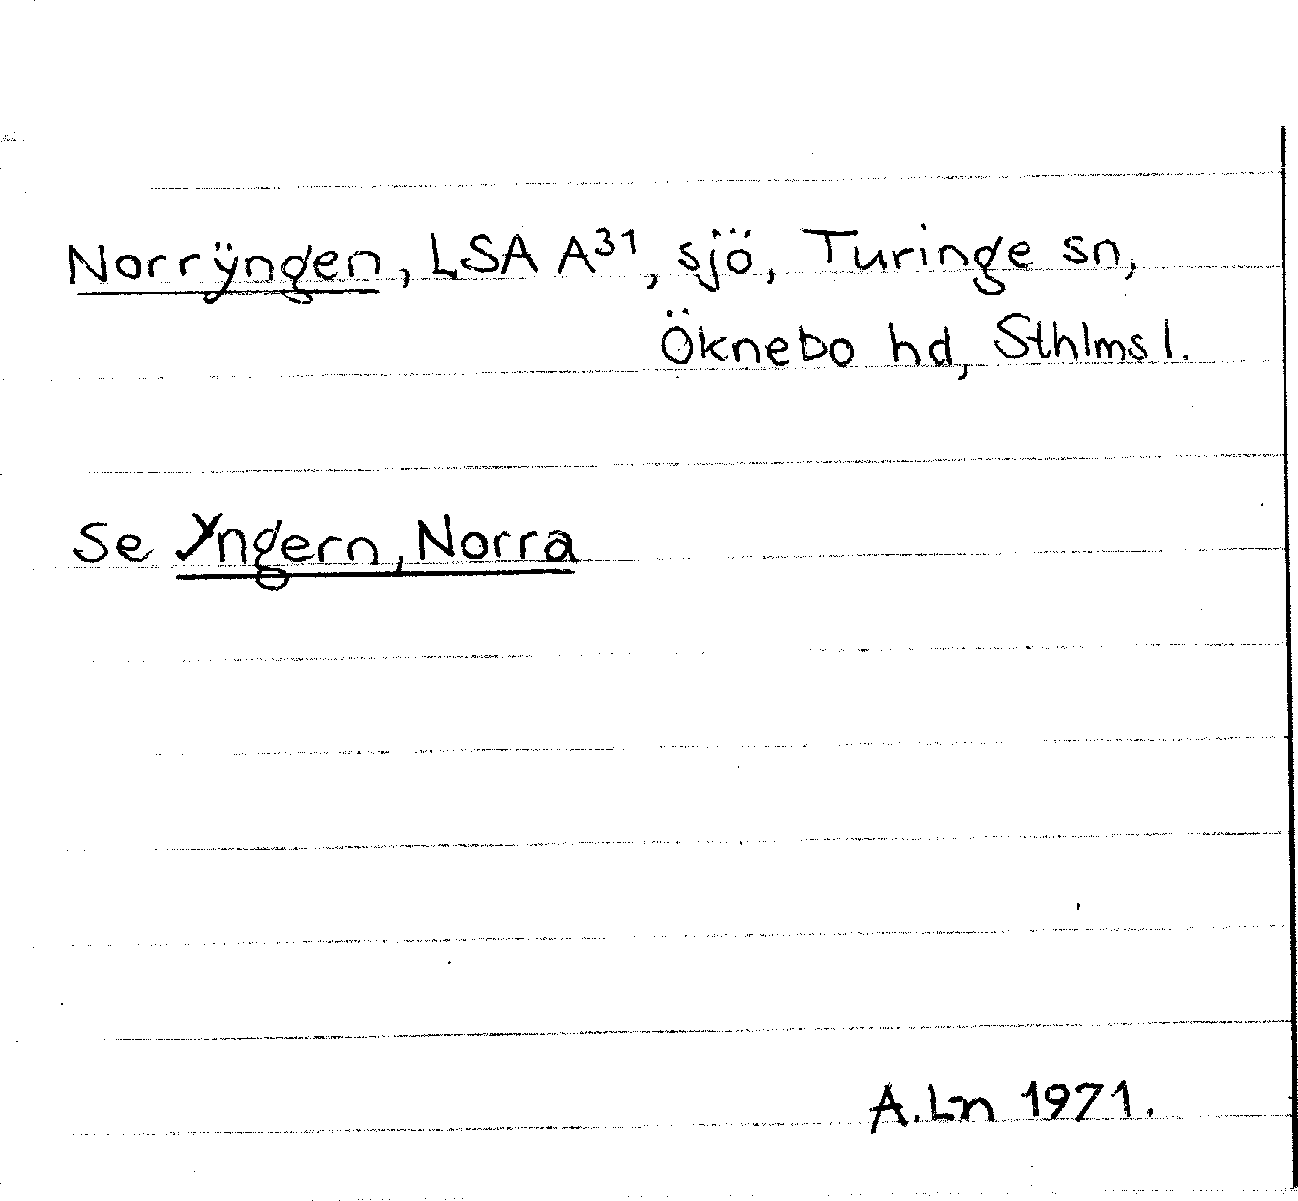 Norrÿngen, LSA A³¹, sjö, Turinge sn,
Öknebo hd, Sthlms l.
Se Yngern, Norra
A.Ln 1971.